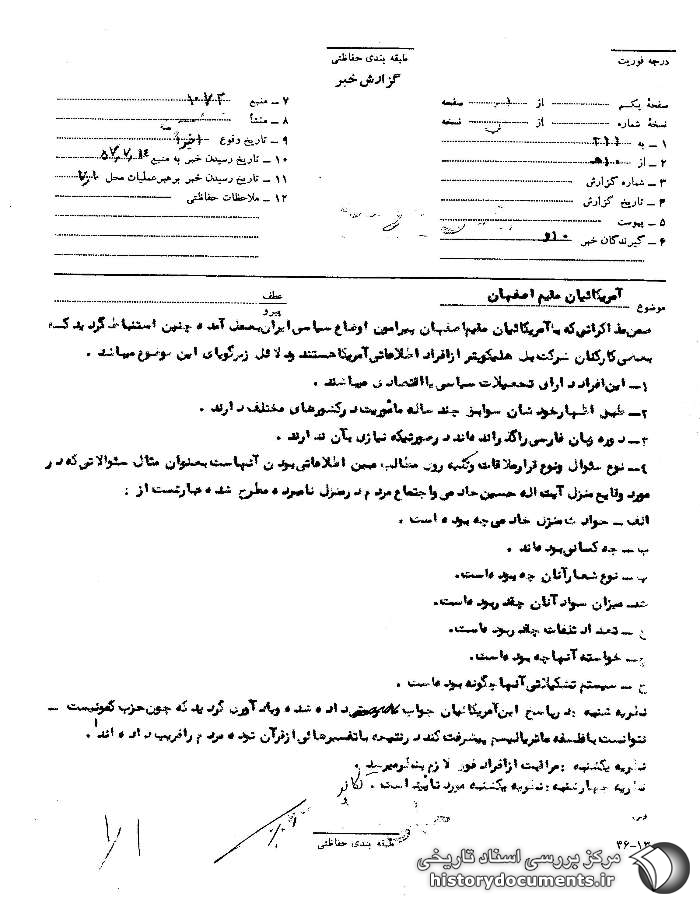 درجه فوریت
طبقه بندی حفاظتی
گزارش خبر
صفحهٔ یکم از ۱ صفحه
نسخهٔ شماره از نسخه
۱ ــ به
۲ ــ از
۳ ــ شماره گزارش
۴ ــ تاریخ گزارش
۵ ــ پیوست
۶ ــ گیرندگان خبر
۷ ــ منبع
۸ ــ منشأ
۹ ــ تاریخ وقوع اخیرا
۱۰ ــ تاریخ رسیدن خبر به منبع
۱۱ ــ تاریخ رسیدن خبر برهبرعملیات محل
۱۲ ــ ملاحظات حفاظتی
موضوع آمریکائیان مقیم اصفهان
عطف
پیرو
ضمن مذاکراتی که با آمریکائیان مقیم اصفهان پیرامون اوضاع سیاسی ایران بعمل آمده چنین استنباط گردید که
بعضی کارکنان شرکت بل هلیکوپتر از افراد اطلاعاتی آمریکا هستند ودلائل زیر گویای این موضوع میباشد .
۱ــ این افراد دارای تحصیلات سیاسی یا اقتصادی میباشند .
۲ــ طبق اظهار خودشان سوابق چند ساله مأموریت در کشورهای مختلف دارند .
۳ــ دوره زبان فارسی را گذرانده اند در صورتیکه نیازی بآن ندارند .
٤ــ نوع سئوال ونوع قرار ملاقات وکلیه روند مطالب مبین اطلاعاتی بودن آنهاست بعنوان مثال سئوالاتی که در
مورد وقایع منزل آیت اله حسین خادمی واجتماع مردم در منزل نامبرده مطرح شده عبارتست از :
الف ــ حوادث منزل خادمی چه بوده است .
ب ــ چه کسانی بوده اند .
پ ــ نوع شعار آنان چه بوده است.
ت ــ میزان سواد آنان چقدر بوده است.
ــ تعداد تلفات چقدر بوده است.
ج ــ خواسته آنها چه بوده است.
ح ــ سیستم تشکیلاتی آنها چگونه بوده است .
نظریه شنبه : در پاسخ این آمریکائیان جواب داده شده ویاد آوری گردید که چون حزب کمونیست ــ
نتوانست با فلسفه ماتریالیسم پیشرفت کند در نتیجه با تفسیرهائی از قرآن توده مردم را فریب داده اند .
نظریه یکشنبه : مراقبت از افراد فوق لازم بنظر میرسد .
نظریه چهارشنبه : نظریه یکشنبه مورد تأیید است .
طبقه بندی حفاظتی
۴۶-۱۳
مرکز بررسی اسناد تاریخی
historydocuments.ir